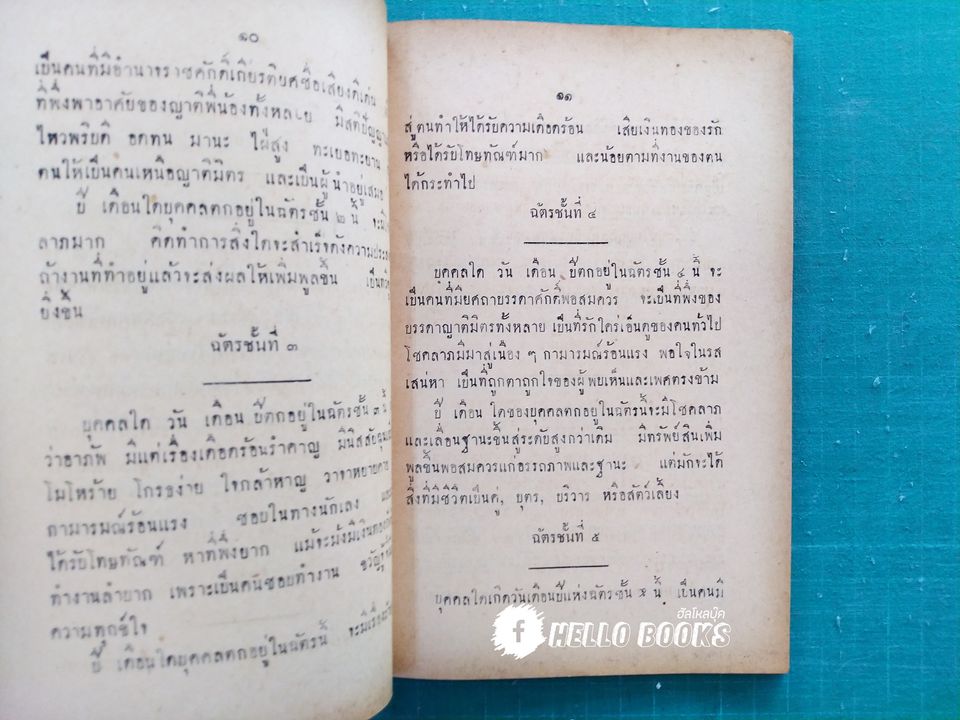 ๑๐
เป็นคนที่มีอำนาจราชศักดิ์เกียรติยศชื่อเสียงดีเด่น
ที่พึ่งพาอาศัยของญาติพี่น้องทั้งหลาย มีสติปัญญา
ไหวพริบดี อดทน มานะ ใฝ่สูง ทะเยอทะยาน
ตนให้เป็นคนเหนือญาติมิตร และเป็นผู้นำอยู่เสมอ
ปี เดือนใดบุคคลตกอยู่ในฉัตรชั้น ๒ นี้ จะมี
ลาภมาก คิดทำการสิ่งใดจะสำเร็จดังความประ
ถ้างานที่ทำอยู่แล้วจะส่งผลให้เพิ่มพูลขึ้น เป็น
ยิ่งขึ้น
ฉัตรชั้นที่ ๓
บุคคลใด วัน เดือน ปีตกอยู่ในฉัตรชั้น ๓ นี้
ว่าอาภัพ มีแต่เรื่องเดือดร้อนรำคาญ มีนิสสัย
โมโหร้าย โกรธง่าย ใจกล้าหาญ วาจาหยาบคาย
กามารมณ์ร้อนแรง ชอบในทางนักเลง
ได้รับโทษทัณฑ์ หาที่พึ่งยาก แม้จะมั่งมีเงินทอง
ทำงานลำบาก เพราะเป็นคนชอบทำงาน
ความทุกข์ใจ
ปี เดือนใดบุคคลตกอยู่ในฉัตรนี้ จะมีเรื่อง
๑๑
สู่ตนทำให้ได้รับความเดือดร้อน เสียเงินทองของรัก
หรือได้รับโทษทัณฑ์มาก และน้อยตามที่งานของตน
ได้กระทำไป
ฉัตรชั้นที่ ๔
บุคคลใด วัน เดือน ปีตกอยู่ในฉัตรชั้น ๔ นี้ จะ
เป็นคนที่มียศถาบรรดาศักดิ์พอสมควร จะเป็นที่พึ่งของ
บรรดาญาติมิตรทั้งหลาย เป็นที่รักใคร่เอ็นดูของคนทั่วไป
โชคลาภมีมาสู่เนือง ๆ กามารมณ์ร้อนแรง พอใจในรส
เสน่หา เป็นที่ถูกตาถูกใจของผู้พบเห็นและเพศตรงข้าม
ปี เดือน ใดของบุคคลตกอยู่ในฉัตรนี้จะมีโชคลาภ
และเลื่อนฐานะขึ้นสู่ระดับสูงกว่าเดิม มีทรัพย์สินเพิ่ม
พูลขึ้นพอสมควรแก่อรรถภาพและฐานะ แต่มักจะได้
สิ่งที่มีชีวิตเป็นคู่, บุตร, บริวาร หรือสัตว์เลี้ยง
ฉัตรชั้นที่ ๕
บุคคลใดเกิดวันเดือนปีแห่งฉัตรชั้น ๕ นี้ เป็นคนมี
ฮัลโหลบุ๊ค
f HELLO BOOKS